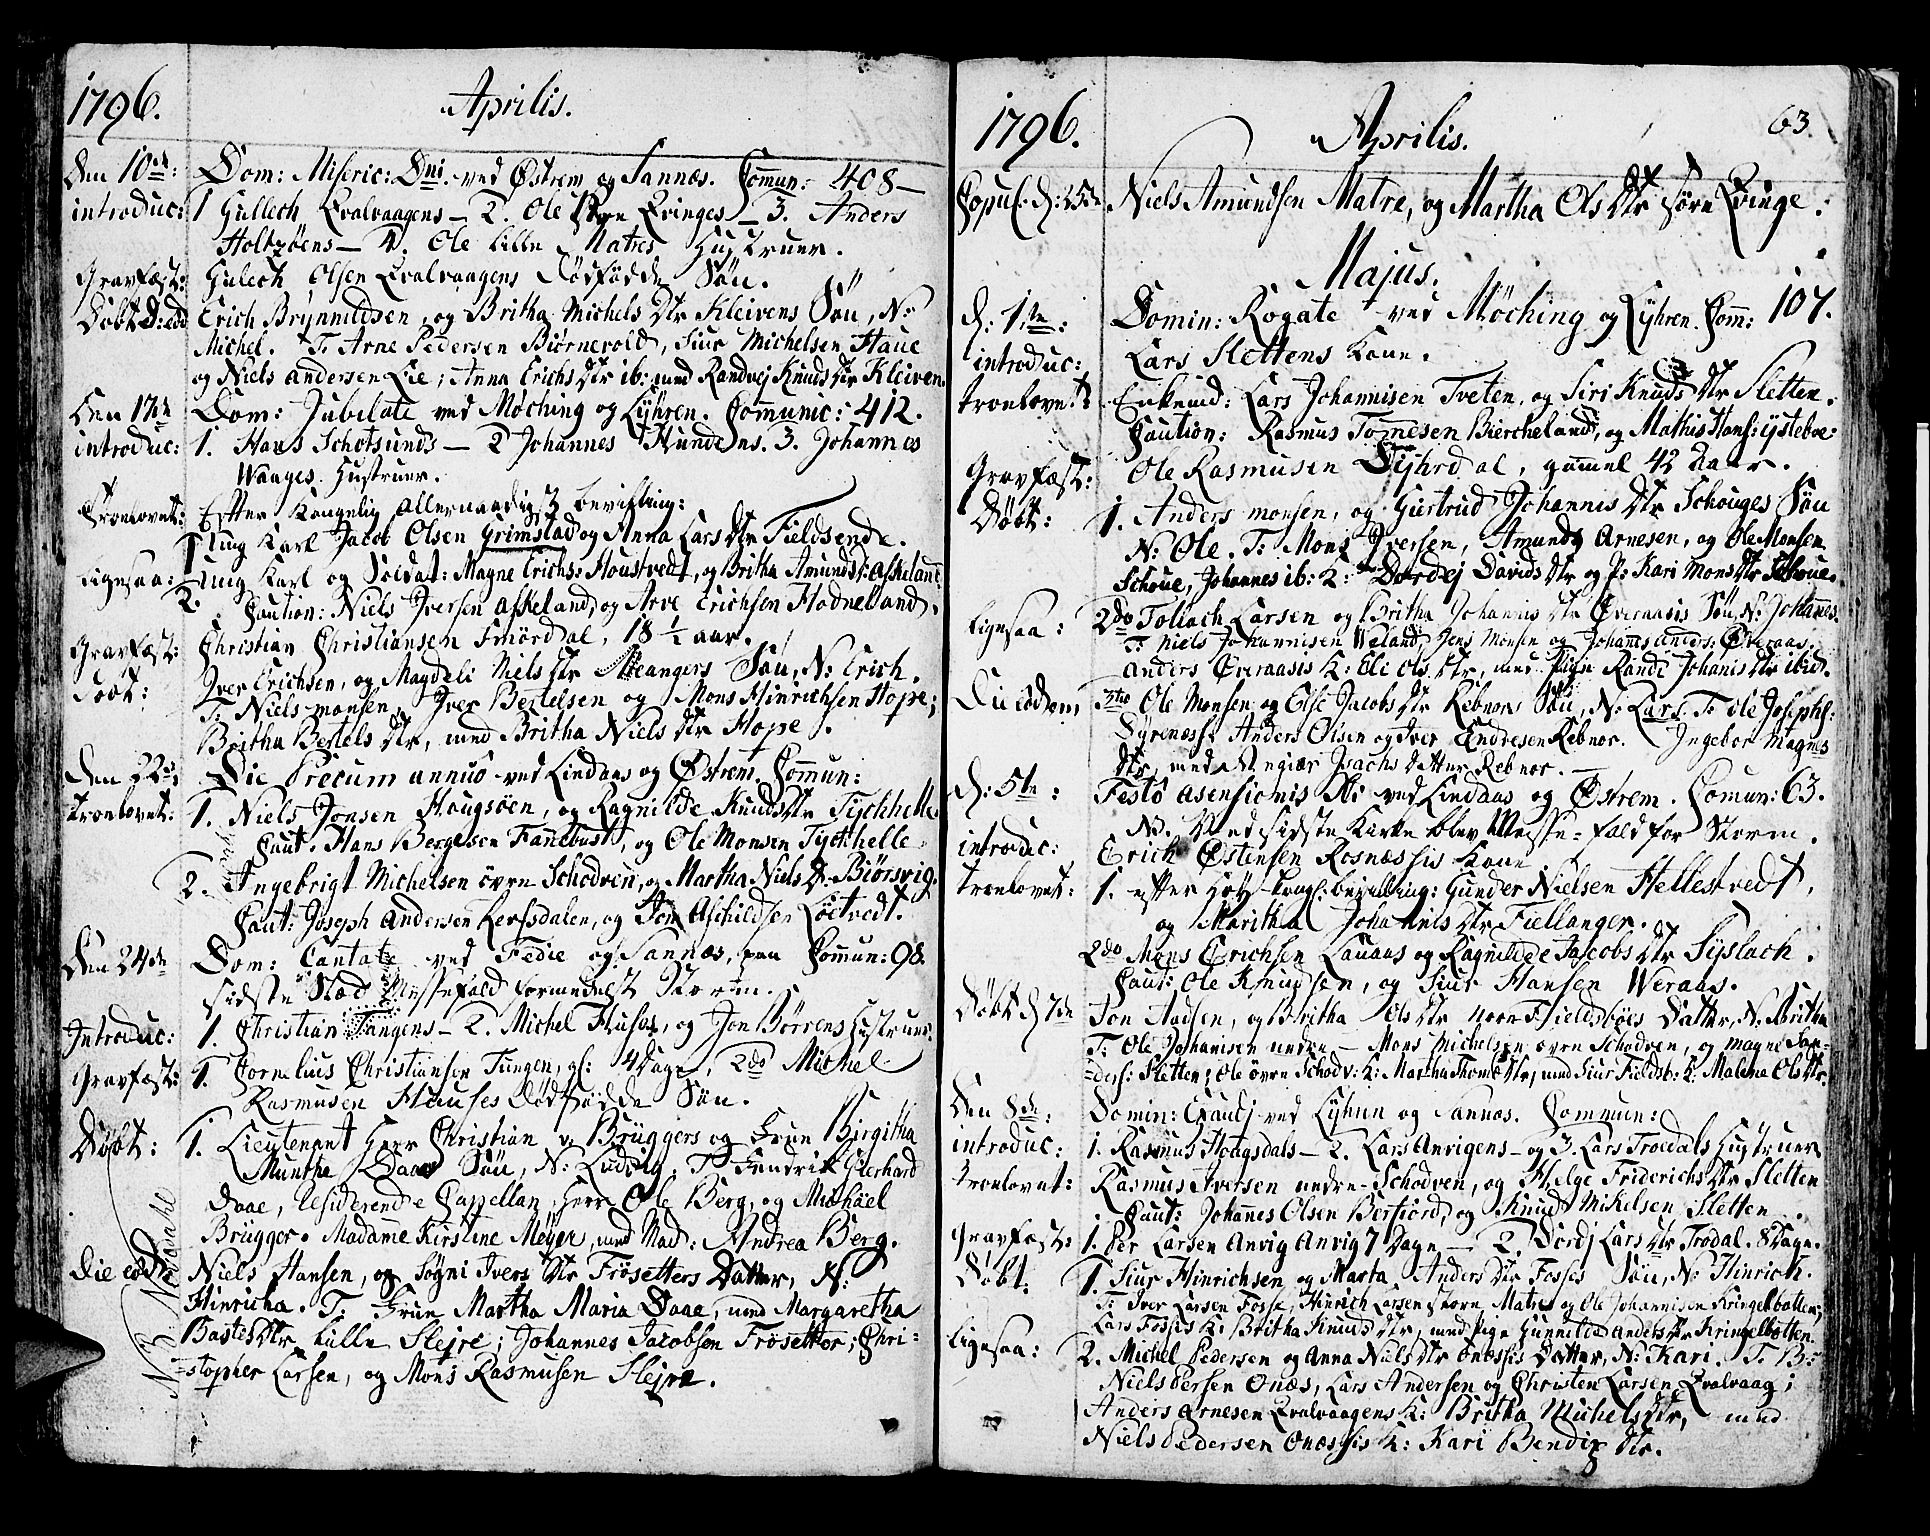 1796.
Aprilis.
Den 10de: Dom: Miseric: Dni. ved Østrem og Sannæs. Comun: 408 —
introduc: 1 Gullech Qvalvaagens — 2. Ole Qvinges — 3. Anders
Holtzøens — 4. Ole Lille Matres Hustruer.
Gravfæst: Gulech Olsen Qvalvaagens dødfødde Søn.
Døbt D: eod Erich Brynnildsen, og Britha Michels Dtr Kleivens Søn, N:
Michel. T. Arne Pedersen Biørnevold, Siur Michelsen Haue
og Niels Andersen Lie; Anna Erichs Dtr ib: med Randvej Knuds Dtr Kleiven.
Den 17de Dom: Jubilate ved Møching og Lyhren. Communic: 412.
introduc: 1. Hans Schotsunds — 2 Johannes Hundens. 3. Johannes
Waages Hustruer.
Troelovet: Efter Kongelig allernaadigst bevilling:
1 Ung Karl Jacob Olsen Grimstad og Anna Lars Dtr Fieldsende.
Ligesaa: 2. Ung Karl og Soldat: Magne Erichs: Houstvedt, og Britha Amunds: Askeland
Caution: Niels Iversen Askeland, og Arve Erichsen Hodneland.
Gravfæst: Christian Christiansen Smørdal, 18 1/2 aar.
Døbt: Iver Erichsen, og Magdeli Niels Dtr Søn, N: Erich.
T: Niels Monsen, Iver Bertelsen og Mons Hinrichsen Hope;
Britha Bertels Dtr, med Britha Niels Dtr Hope.
Den 22de Die Precum annuo ved Lindaas og Østrem. Commun:
Troelovet: 1. Niels Jonsen Hougsøen, og Ragnilde Knuds Dtr Tyckhelle.
Caut. Hans Bergesen Fanebust, og Ole Monsen Tyckhelle
2. Ingebrigt Michelsen øvre Schodven, og Martha Niels D. Biørsvig.
Caut: Joseph Andersen Kersdalen, og Jon Aschildsen Løtvedt.
Den 24de Dom: Cantate ved Fedie og Sannæs, paa Commun: 98.
sidste Stæd Messefald formedelst Storm.
Introduc: 1. Christian Tangens — 2. Michel Huses, og Jon Børrens Hustruer.
Gravfæst: 1. Cornelius Christiansen Tungen, gl: 4 Dage, 2do Michel
Rasmusen Hauses Dødfødde Søn.
Døbt: 1. Lieutenant Herr Christian v. Brüggers og Frue Birgitha
Munthe Daas Søn, N: Ludvig. T. Hendrik Gierhard
Daae, Residerende Capellan, Herr Ole Berg, og Michael
Brügger. Madame Kirstine Meyer, med Mad: Andrea Berg.
Die eod: Niels Hansen, og Søgni Ivers Dtr Frøsetters Datter, N:
Hinricha. T: Frue Martha Maria Daae, med Margaretha
Bastes Dtr Lille Slejre; Johannes Jacobsen Frøsetter; Chri-
stopher Larsen, og Mons Rasmusen Slejre.
1796.
Aprilis.
63.
Copul. D: 25de Niels Amundsen Matre, og Martha Ols Dtr søre Qvinge.
Majus.
D: 1ste: Domin: Rogate ved Møching og Lyhren. Comm: 107.
introduc: Lars Slettens Kone.
Troelovet: Enkemd: Lars Johannisen Tveten, og Siri Knuds Dtr Sletten.
Caution: Rasmus Tommesen Biercheland, og Mathis Hans: ysteboe.
Gravfæst: Ole Rasmusen Dyhrdal, gammel 42 Aar.
Døbt: 1. Anders Monsen, og Giertrud Johannis Dtr Schouges Søn
N: Ole. T: Mons Iversen, Amund Arnesen, og Ole Monsen
Schoue, Johannes ib: K: Dordej Davids Dtr og P: Kari Mons Dtr Schoue.
Ligesaa: 2do Tollach Larsen og Britha Johannis Dtr Øveraasis Søn, N: Johannes.
T: Niels Johannisen Weland, Jens Monsen og Johannes Anders: Øveraas.
Anders Øveraasis K: Eli Ols Dtr, med Pige Rande Johanis Dtr ibid.
Die eodem 3tio Ole Monsen og Else Jacobs Dtr Rebnors Søn, N: Lars. T: Ole Josephs:
Syrenæs, Anders Olsen og Iver Endresen Rebnor. Ingebor Magnes
Dtr, med Isachs Datter Rebnor.
D: 5te: Festo Asensionis Xti ved Lindaas og Østrem. Comun: 63.
NB. Ved sidste Kirke blev Messe-fald for Storm.
introduc: Erich Østensen Rosnæssis Kone.
Troelovet: 1. efter høy Kongl: bevilling: Gunder Nielsen Hellestvedt,
og Maritha Johannis Dtr Fiellanger.
2do Mons Erichsen Lauaas og Ragnilde Jacobs Dtr Syslach.
Caut: Ole Knudsen, og Siur Hansen Weraas.
Døbt D: 7de Jon Aadsen, og Britha Ols Dtr Fieldsbøes Datter, N: Britha
T: Ole Johanisen nedre — Mons Michelsen øvre Schodven, og Magne San-
ders: Sletten; Ole øvre Schodv: K: Martha Thoms Dtr, med Siur Fieldsb: K: Malene Ols Dtr.
Den 8de: Domin: Exaudj ved Lyhren og Sannæs. Commun:
introduc: 1. Rasmus Hougsdals — 2. Lars Anvigens — og 3. Lars Troedals Hustruer
Troelovet: Rasmus Iversen nedre Schodven, og Helge Friderichs Dtr Sletten
Caut: Johannes Olsen Berfiord, og Knud Mikelsen Sletten.
Gravfæst: 1. Per Larsen Anvig Anvig 7 Dage — 2. Dordj Lars Dtr Trodal. 8 Dage.
Døbt. 1. Siur Hinrichsen og Marta Anders Dtr Fosses Søn, N: Hinrich.
T: Iver Larsen Fosse, Hinrich Larsen store Matre og Ole Johannisen Kringelbotten;
Lars Fossis K: Britha Knuds Dtr, med Pige Gunnilde Anders Dtr Kringelbotten.
Ligesaa: 2. Michel Pedersen og Anna Niels Dtr Onæssis Datter, N: Kari. T: B:
Niels Persen Onæs, Lars Andersen og Christen Larsen Qvalvaag;
Anders Arnesen Qvalvaagens K: Britha Michels Dtr, med
Niels Pedersen Onæssis K: Kari Bendix Dtr.